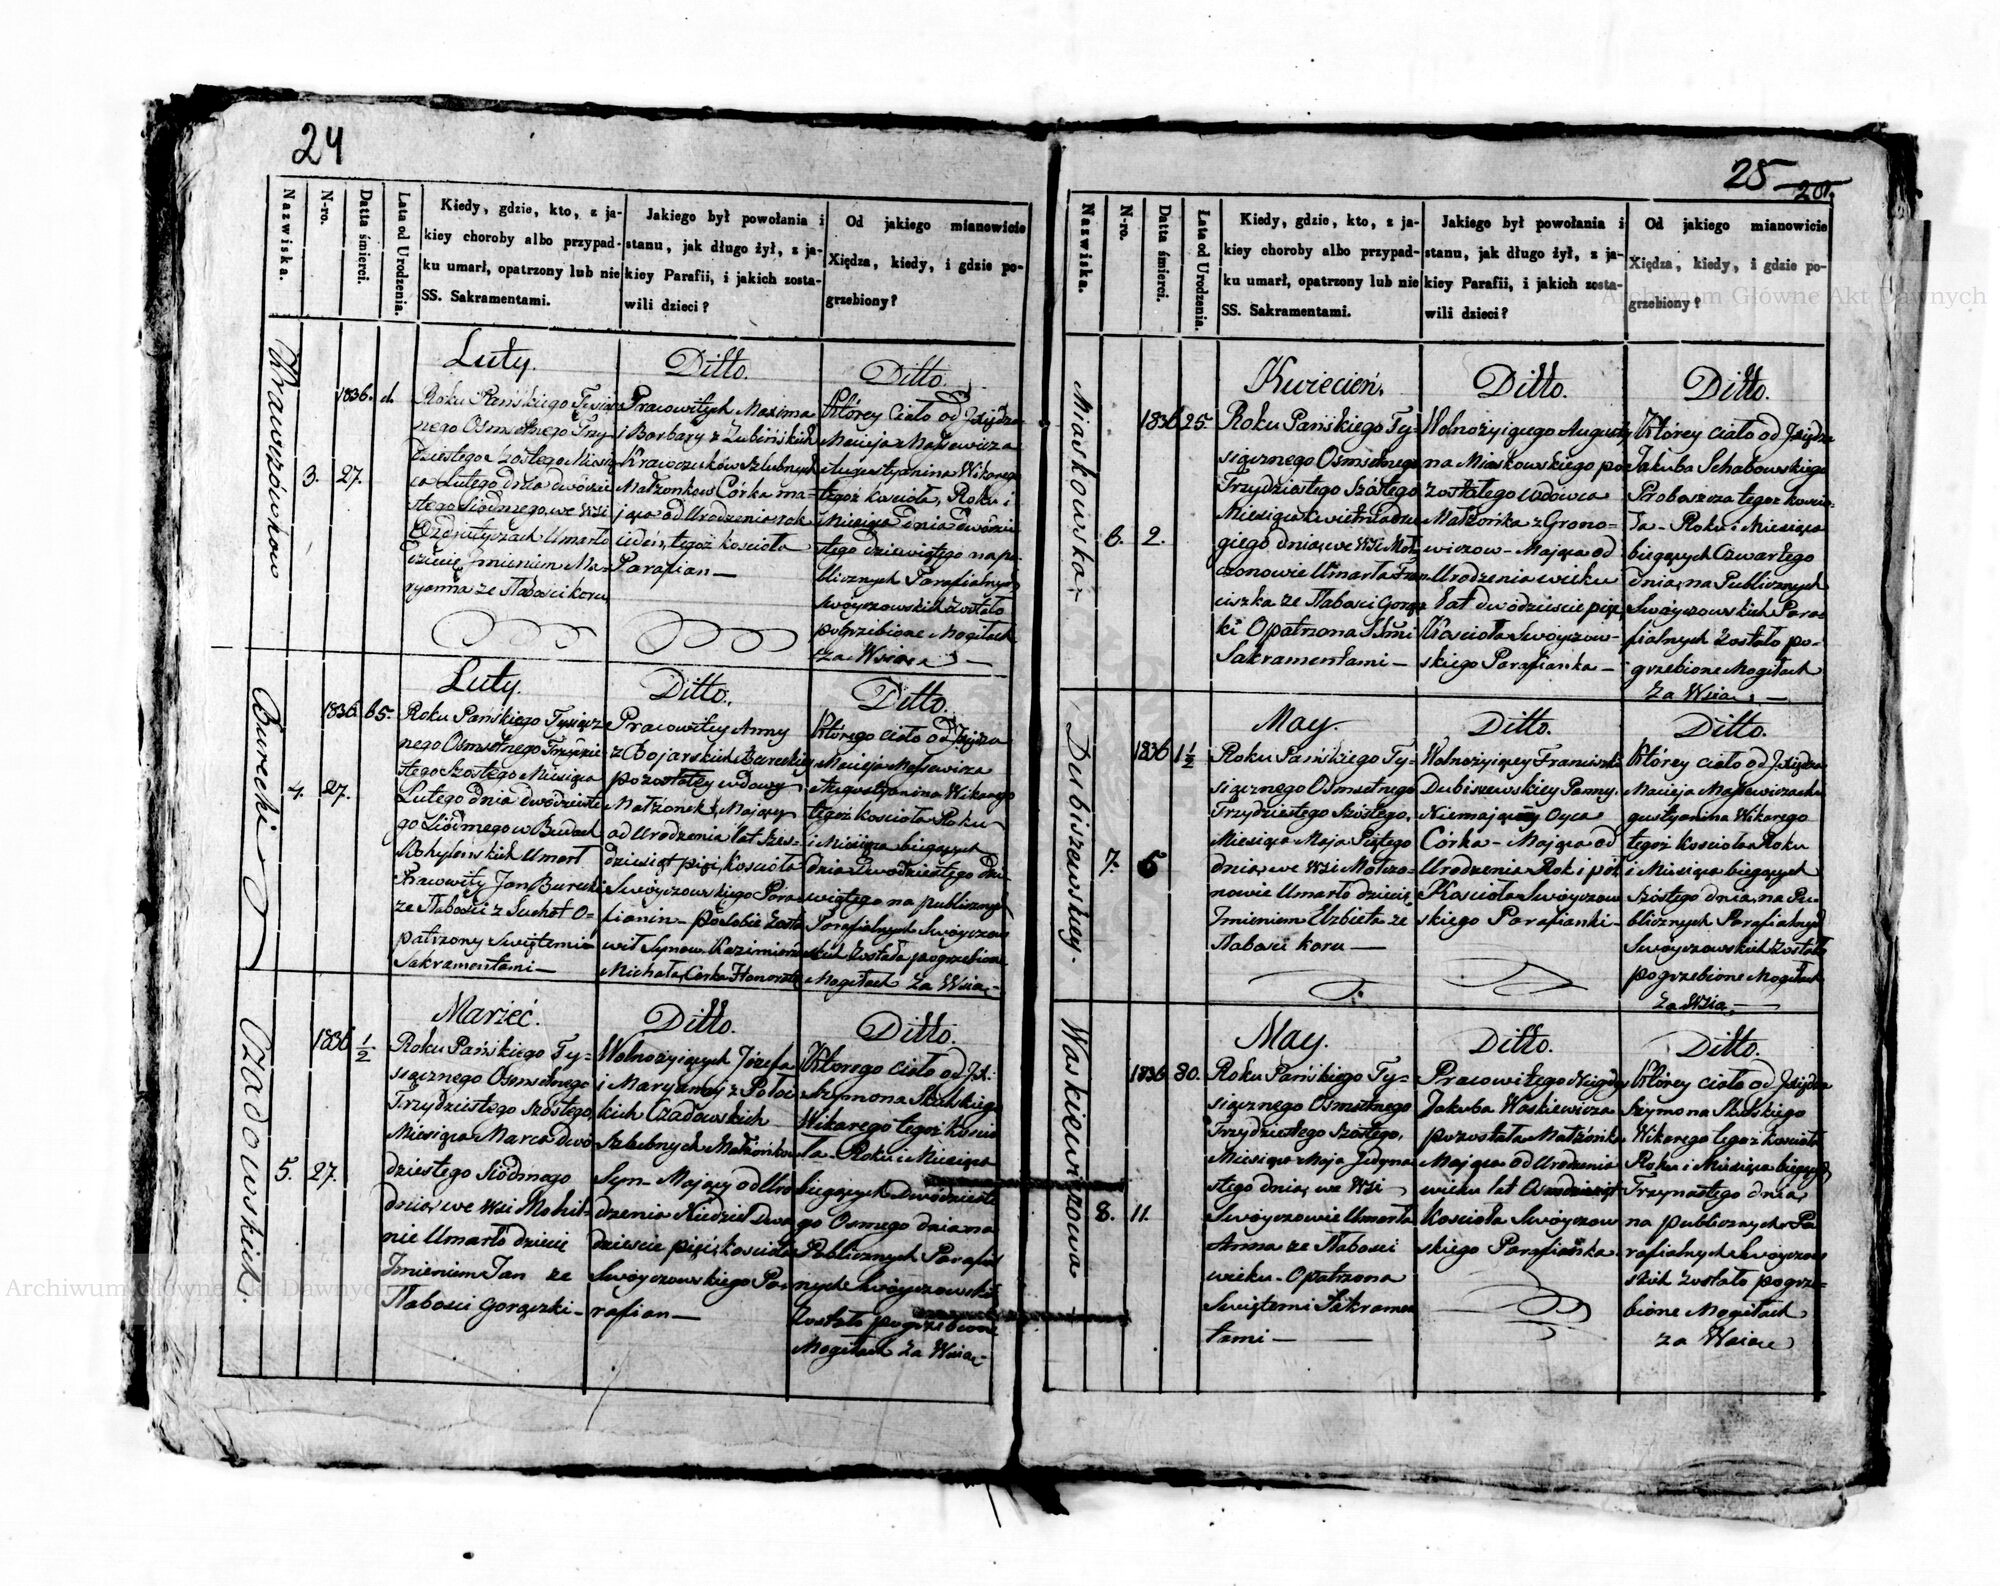 24
Nazwiska.
N-ro.
Datta śmierci.
Lata od Urodzenia.
Kiedy, gdzie, kto, z ja-
kiey choroby albo przypad-
ku umarł, opatrzony lub nie
SS. Sakramentami.
Jakiego był powołania i
stanu, jak długo żył, z ja-
kiey Parafii, i jakich zosta-
wili dzieci?
Od jakiego mianowicie
Xiędza, kiedy, i gdzie po-
grzebiony?
Krawczówkow
3.
1836.
27.
d.
Luty.
Roku Pańskiego Tysiąc
nego Osmsetnego Trzy
dziestego Szostego Miesią
ca Lutego dnia dwódzie
stego Siódmego, we Wsi
Umarło
dziecię Imieniem Ma-
ryanna ze Słabości koru
Ditto.
Pracowitych Maxima
i Barbary z Zubińskich
Krawczuków Szlubnych
Małżonkow Córka ma-
jąca od Urodzenia rok
ieden, tegoż kościoła
Parafian —
Ditto.
Którey ciało od JXiędza
Macieja Majewicza
Augustyanina Wikarego
tegoż kościoła, Roku i
Miesiąca dnia dwódzie
stego dziewiątego na pu-
blicznych Parafialnych
Swóyczowskich zostało
pogrzebione Mogiłach
za Wsią —
Burecki
4.
1836
27.
65.
Luty.
Roku Pańskiego Tysiącz
nego Osmsetnego Trzydzie
stego Szostego Miesiąca
Lutego dnia dwódzieste
go Siódmego w Budach
Mohylenskich Umarł
Pracowity Jan Burecki
ze Słabości z Suchot O-
patrzony Swiętemi
Sakramentami —
Ditto.
Pracowitey Anny
z Bojarskich Bureckiey
pozostałey wdowy
Małżonek, Mający
od Urodzenia lat Szes-
dziesiąt pięć, kościoła
Swóyczowskiego Para
fianin — po sobie zosta
wił Synow Kazimierza
Michała, Corka Honorata
Ditto.
Którego ciało od JXiędza
Macieja Majewicza
Augustyanina Wikarego
tegoż kościoła Roku
i Miesiąca bieżących
dnia Dwudziestego dzie
wiątego na publicznych
Parafialnych Swóyczow
skich Zostało pogrzebione
Mogiłach za Wsią —
Czadowskich.
5.
1836
27.
1/2
Marzec.
Roku Pańskiego Ty-
siącznego Osmsetnego
Trzydziestego Szóstego,
Miesiąca Marca dwó
dziestego Siódmego
dnia, we Wsi Mohil-
nie Umarło dziecię
Imieniem Jan ze
Słabości gorączki —
Ditto.
Wolnożyiących Józefa
i Maryanny z Potoc
kich Czadowskich
Szlubnych Małżonkow
Syn — Maiący od Uro
dzenia Niedziel Dwa
dzieście pięć, kościoła
Swóyczowskiego Pa-
rafian —
Ditto.
Którego ciało od JX.
Szymona Skulskiego
Wikarego tegoż kościo
ła — Roku i Miesiąca
bieżących Dwódzieste
go Osmego dnia na
Publicznych Parafial
nych Swóyczowskich
Zostało pogrzebione
Mogiłach za Wsią —
25
20.
Nazwiska.
N-ro.
Datta śmierci.
Lata od Urodzenia.
Kiedy, gdzie, kto, z ja-
kiey choroby albo przypad-
ku umarł, opatrzony lub nie
SS. Sakramentami.
Jakiego był powołania i
stanu, jak długo żył, z ja-
kiey Parafii, i jakich zosta-
wili dzieci?
Od jakiego mianowicie
Xiędza, kiedy, i gdzie po-
grzebiony?
Miaskowska.
6.
1836
2.
25.
Kwiecień.
Roku Pańskiego Ty-
siącznego Osmsetnego
Trzydziestego Szóstego
Miesiąca Kwietnia dru
giego dnia, we Wsi Moł
czonowie Umarła Fran
ciszka ze Słabości Gorącz
ki Opatrzona SSmi
Sakramentami —
Ditto.
Wolnożyiącego Augusty
na Miaskowskiego po
zostałego wdówca
Małżonka z Grono-
wiczow — Mająca od
Urodzenia wieku
lat dwódzieście pięć,
Kościoła Swóyczow-
skiego Parafianka —
Ditto.
Którey ciało od JXiędza
Jakuba Schabowskiego
Proboszcza tegoż kościo
ła — Roku i Miesiąca
bieżących Czwartego
dnia, na Publicznych
Swoyczowskich Para
fialnych Zostało po-
grzebione Mogiłach
za Wsią, —
Dubiszewskiey.
7.
1836
5
1 1/2
May.
Roku Pańskiego Ty-
siącznego Osmsetnego
Trzydziestego Szóstego,
Miesiąca Maja Piątego
dnia, we Wsi Mołczo-
nowie Umarło dziecię
Imieniem Elzbieta ze
Słabości koru —
Ditto.
Wolnożyiącey Franciszki
Dubiszewskiey Panny,
Niemającey Oyca
Córka — Mająca od
Urodzenia Rok i pół
Kościoła Swóyczow
skiego Parafianki —
Ditto.
Którey ciało od JXiędza
Macieja Majewicza Au
gustyanina Wikarego
tegoż kościoła Roku
i Miesiąca bieżących
Szóstego dnia, na Pu-
blicznych Parafialnych
Swóyczowskich Zostało
pogrzebione Mogiłach
za Wsią, —
Waskiewiczowa
8.
1836
11.
80.
May.
Roku Pańskiego Ty-
siącznego Osmsetnego
Trzydziestego Szóstego,
Miesiąca Maja Jedyna
stego dnia, we Wsi
Swóyczowie Umarła
Anna ze Słabości
wieku — Opatrzona
Swiętemi Sakramen
tami —
Ditto.
Pracowitego Niegdy
Jakuba Waskiewicza
pozostała Małżonka
Mająca od Urodzenia
wieku lat Osmdziesiąt
Kościoła Swóyczow
skiego Parafianka.
Ditto.
Którey ciało od JXiędza
Szymona Skulskiego
Wikarego tegoż kościoła
Roku i Miesiąca bieżących
Trzynastego dnia,
na publicznych Pa
rafialnych Swóyczow
skich Zostało pogrze-
bione Mogiłach
za Wsią
Archiwum Główne Akt Dawnych
Archiwum Główne Akt Dawnych